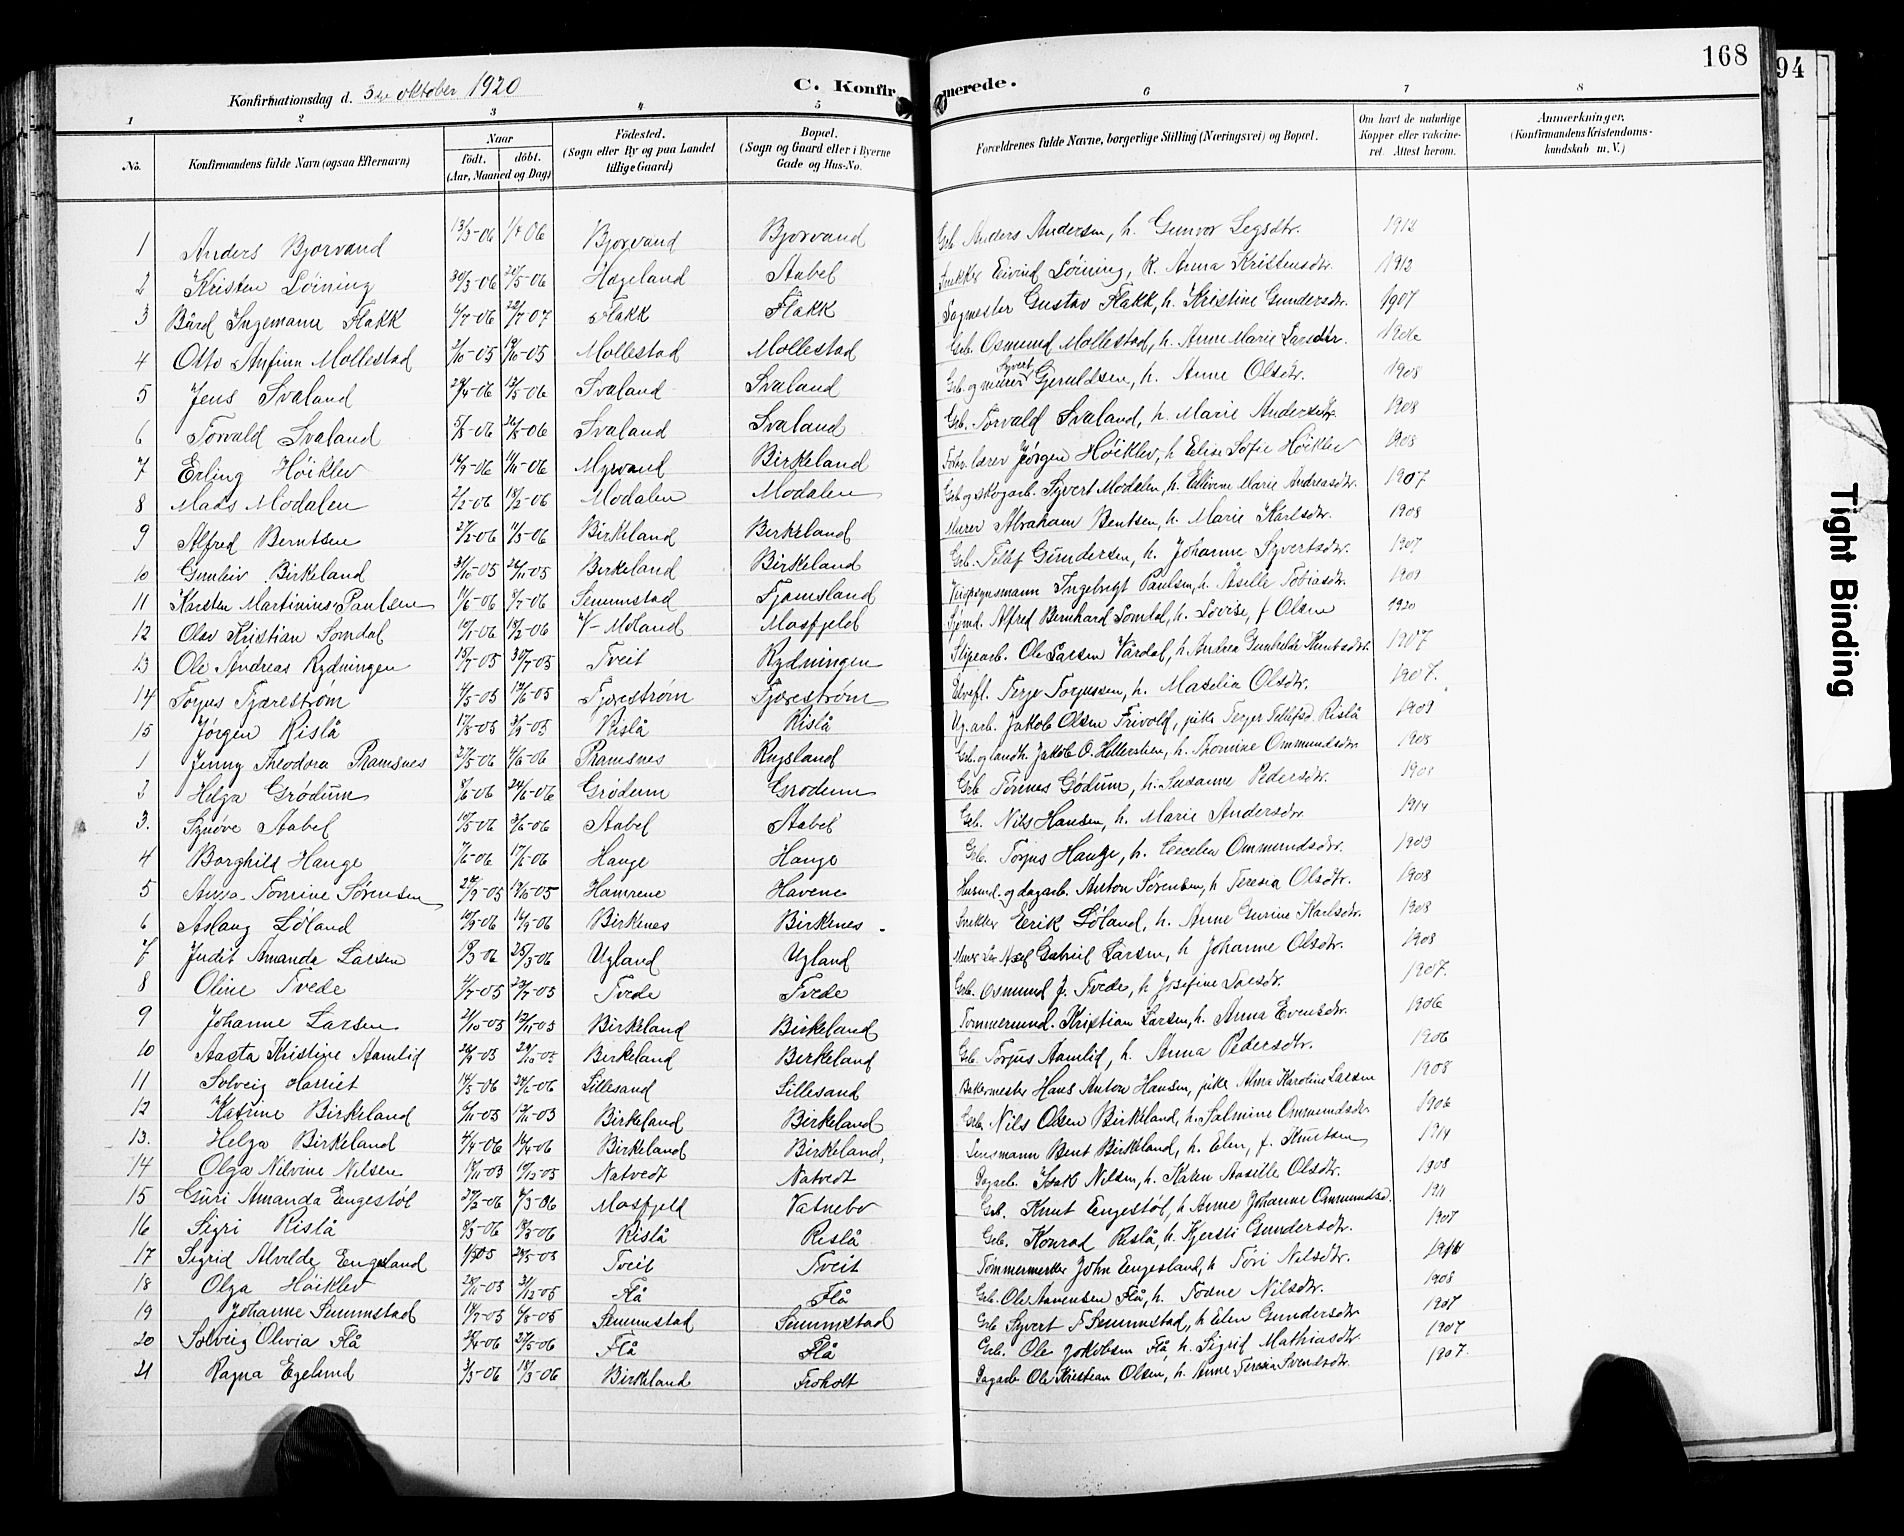 168
94
Konfirmationsdag d. 3die oktober 1920
C. Konfirmerede.
1 2 3 4 5 6 7 8
No. Konfirmandens fulde Navn (ogsaa Efternavn) Naar født. døbt. (Aar, Maaned og Dag) Fødested. (Sogn eller By og paa Landet tillige Gaard) Bopæl. (Sogn og Gaard eller i Byerne Gade og Hus-No. Forældrenes fulde Navne, borgerlige Stilling (Næringsvei) og Bopæl. Om havt de naturlige Kopper eller vaccineret. Attest herom. Anmærkninger, (Konfirmandens Kristendomskundskab m. V.)
1 Anders Bjorvand 13/3-06 1/4 06 Bjorvand Bjorvand Grb Anders Andersen, h. Gunvor 1912
2 Kristen Löining 30/3-06 20/5-06 Hageland Aabel Snekker Eivind Löining, K. Anna Kristensdtr. 1912
3 Bård Ingemann Flakk 6/7-06 22/7 07 Flakk Flakk Sagmester Gustav Flakk, h. Kristine Gundersdtr. 1907
4 Otto Anfinn Mollestad 2/10-05 Mollestad Mollestad Grb. Osmund Mollestad, h. Anne Marie Larsdtr. 1906
5 Jens Svaland 24/4-06 Svaland Svaland Grb. og murer Syvert Geruldsen, h. Anne Olsdtr. 1908
6 Torvald Svaland Svaland Svaland Grb. Torvald Svaland, h. Marie Andersdtr. 1908
7 Erling Höiklev Myrvand Birkeland lærer Jörgen Höiklev, h Elise Sofie Höiklev 1908
8 Mads Modalen 2/2-06 18/2-06 Modalen Modalen Grb og skogarb. Syvert Modalen, h. Marie Andreasdtr. 1907
9 Alfred Berntsen 27/2-06 Birkeland Birkeland Murer Abraham Bentsen, h. Marie Karlsdtr. 1908
10 Gunleiv Birkeland 31/10-05 26/11-05 Birkeland Birkeland Grb. Tellef Gundersen, h. Johanne Syvertsdtr. 1907
11 Karsten Martinius Paulsen Senumstad Fjamsland Ingebrigt Paulsen, h. Aselle Tobiasdtr. 1909
12 Olav Kristian Somdal V-Moland Mosfjeld Sjömd. Alfred Bernhard Somdal, h. Lovise, f Olsen 1920
13 Ole Andreas Rydningen 15/7-05 30/7-05 Tveit Rydningen Slipearb. Ole Larsen Vårdal, h. Andrea Gunhilde Knutsdtr. 1907
14 Torjus Tjærestrøm Tjærestrøm Tjærestrøm Elvefl. Terje Torjussen, h. Maselia Olsdtr. 1907.
15 Jørgen Rislå Rislå Rislå Ug. arb. Jakob Olsen Frivold, pike Terjer Tellefsd. Rislå 1909
1 Jenny Theodora Ramsnes 27/5-06 Ramsnes Rugsland Grb. og landh. Jakob O. Hellerslien, h. Thomine Ommundsdtr. 1908
2 Helga Grødum 24/6-06 Grødum Grodum Grb Tormes Gødum, h. Susanne Pedersdtr. 1908
3. Synöve Aabel Aabel Aabel Grb. Nils Hansen, h. Marie Andersdtr. 1914
4 Borghild Hauge 17/6-06 Hauge Hauge Grb. Torjus Hauge, h. Cecelia Ommundsdtr. 1909
5 Anna Tomine Sørensen Hamrene Havene Husmd. og dagarb. Anton Sørensen, h Teresia Olsdtr. 1908
6 Aslaug Løland Birkenes Birkenes Snekker Eerik Løland, h. Anne Gurine Karlsdtr. 1908
7 Judit Amanda Larsen 25/3-06 Ugland Ugland Gabriel Larsen, h Johanne Olsdtr. 1908
8 Oline Tvede 4/7-05 23/7-05 Tvede Tvede Grb. Osmund J. Tvede, h Josefine 1907.
9 Johanne Larsen 21/10-05 12/11-05 Birkeland Birkeland Tømmermd. Kristian Larsen, h. Anna Evensdtr. 1906
10 Aasta Kristine Aamlid Birkeland Birkeland Grb. Torjus Aamlid, h. Anna Pedersdtr. 1906
11 Solveig Harriet 14/5-06 24/6-06 Lillesand Lillesand Bakermester Hans Anton Hansen, pike Alma Karoline Larsen 1908
12 Katrine Birkeland Birkeland Birkeland Grb. Nils Olsen Birkeland, h. Salmine Ommundsdtr. 1906
13. Helga Birkeland 4/4-06 Birkeland Birkeland, Lensmann Bent Birkeland, h. Elen, f. Knutsen 1914
14 Olga Nilvine Nilsen Natvedt Natvedt Dagarb. Isak Nilsen, h. Karen Aaselle Olsdtr. 1908
15 Guri Amanda Engestöl 27/2-06 Mosfjeld Vatnebo Grb. Knut Engestøl, h Anne Johanne Ommundsd. 1911
16 Sigri Rislå Rislå Rislå Grb. Konrad Rislå, h. Kjersti Gundersdtr. 1907
17 Sigrid Alvilde Engesland Tveit Tveit Tømmermerker John Engesland, h Tøri Nilsdtr. 1911
18 Olga Höiklev 31/12-05 Flå Flå Grb. Ole Aanensen Flå, h. Tosne Nilsdtr. 1908
19 Johanne Senumstad Senumstad Senumstad Grb Syvert T Senumstad, h Elen Gundersdtr 1907
20 Solveig Olivia Flå 27/5-06 Flå Flå Grb. Ole Jakobsen Flå, h. Sigrid Mathiasdtr. 1907
21 Ragna Egelund 3/3-06 18/3-06 Birkeland Froholt Dagarb Ole Kristian Olsen, h. Anne Teresia Svendsdtr. 1907.
Tight Binding